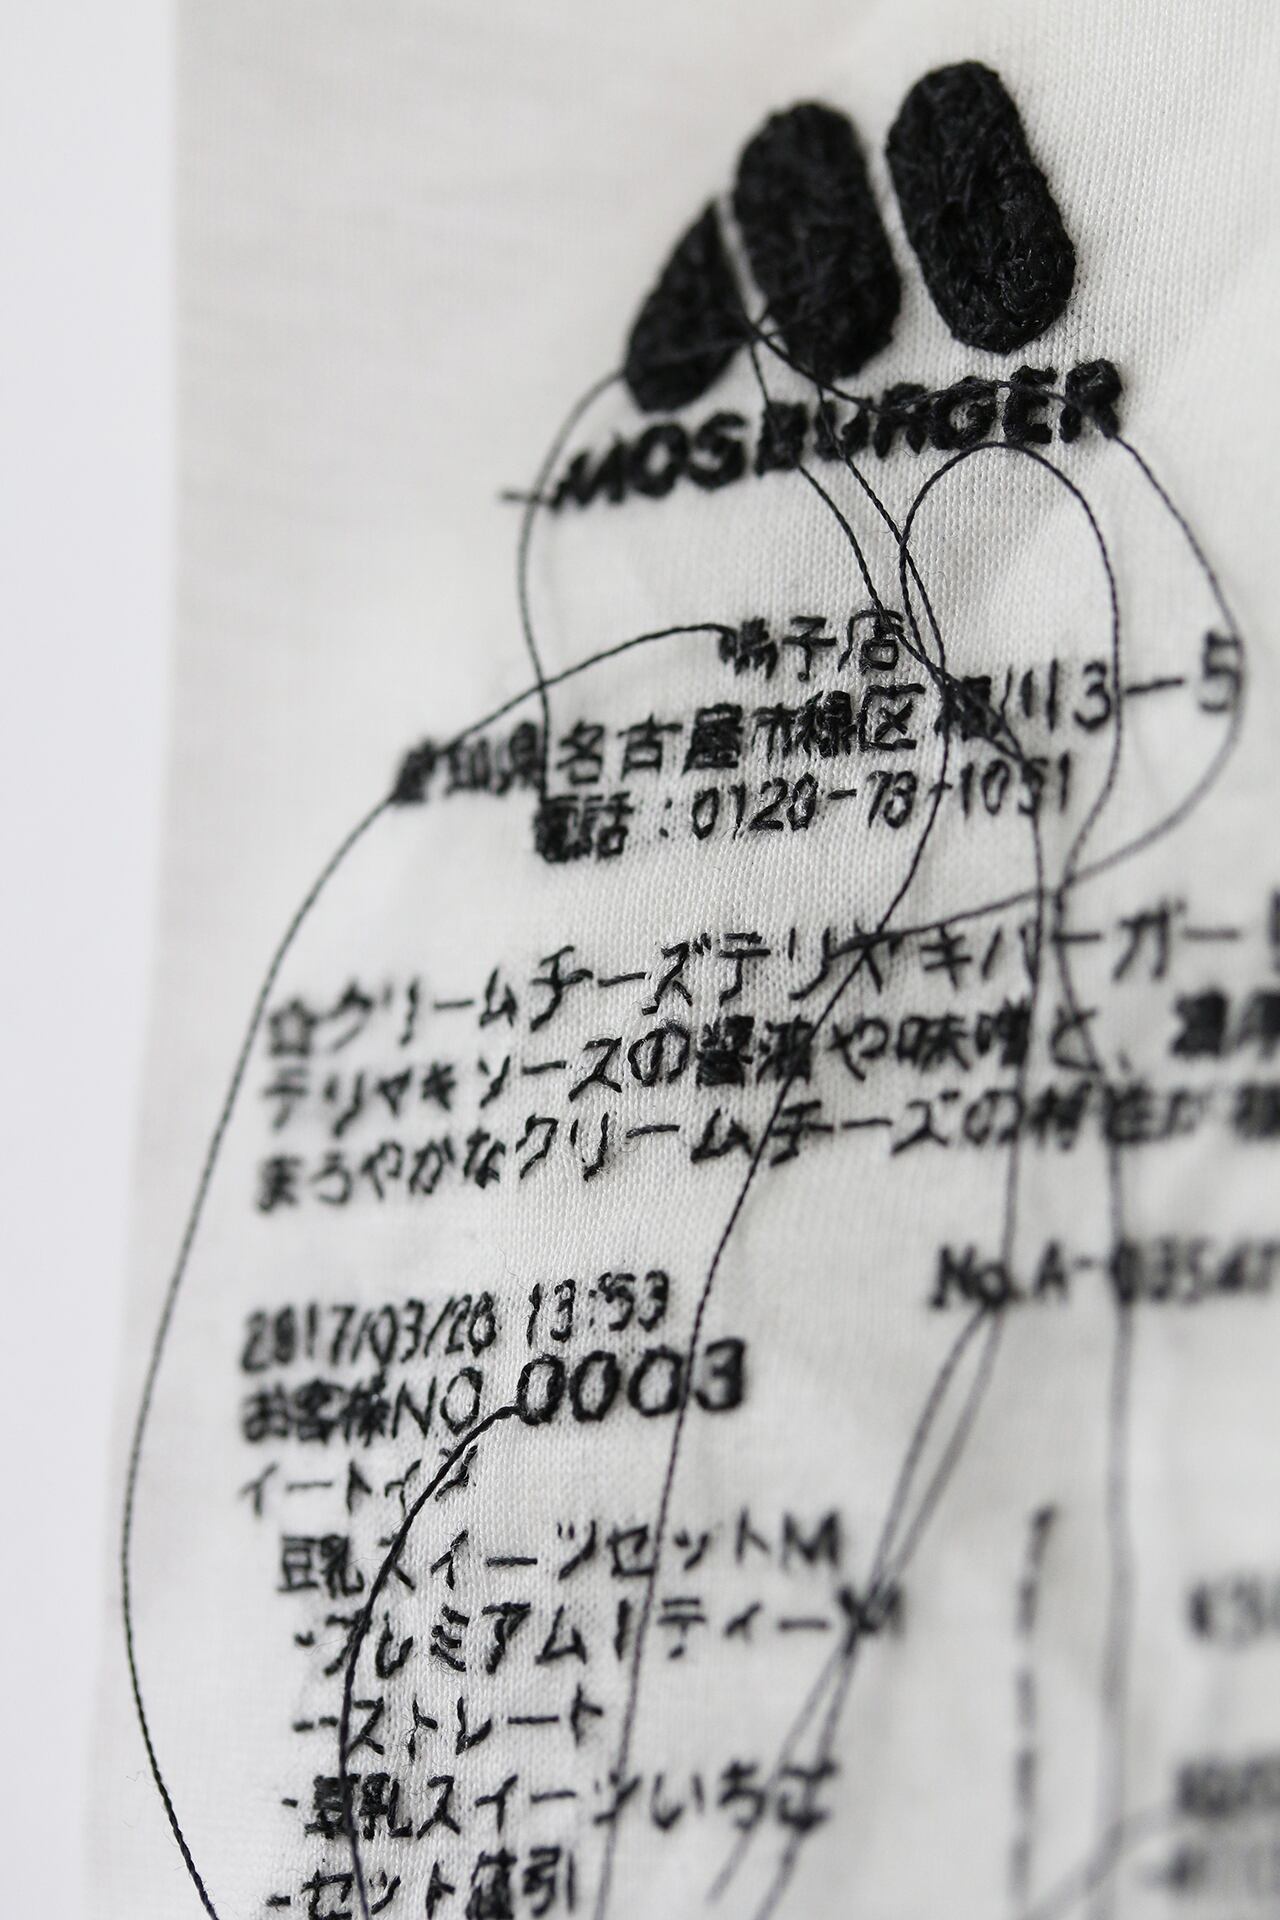 MOSBURGER
鳴子店
愛知県名古屋市緑区 川113-5
電話:0120-78-1051
□クリームチーズテリヤキバーガー
テリヤキソースの醤油や味噌と、濃厚
まろやかなクリームチーズの相性が
No.A-
2017/03/28 13:53
お客様NO 0003
イートイン
豆乳スイーツセットM
・プレミアムTティーM
--ストレート
・豆乳スイーツいちご
-セット値引